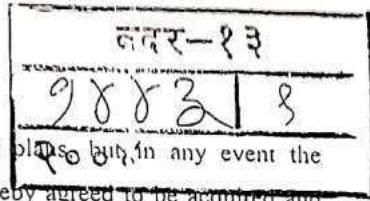 बदर-१३
१४४३ १
plans, but in any event the
eby agreed to be acquired and